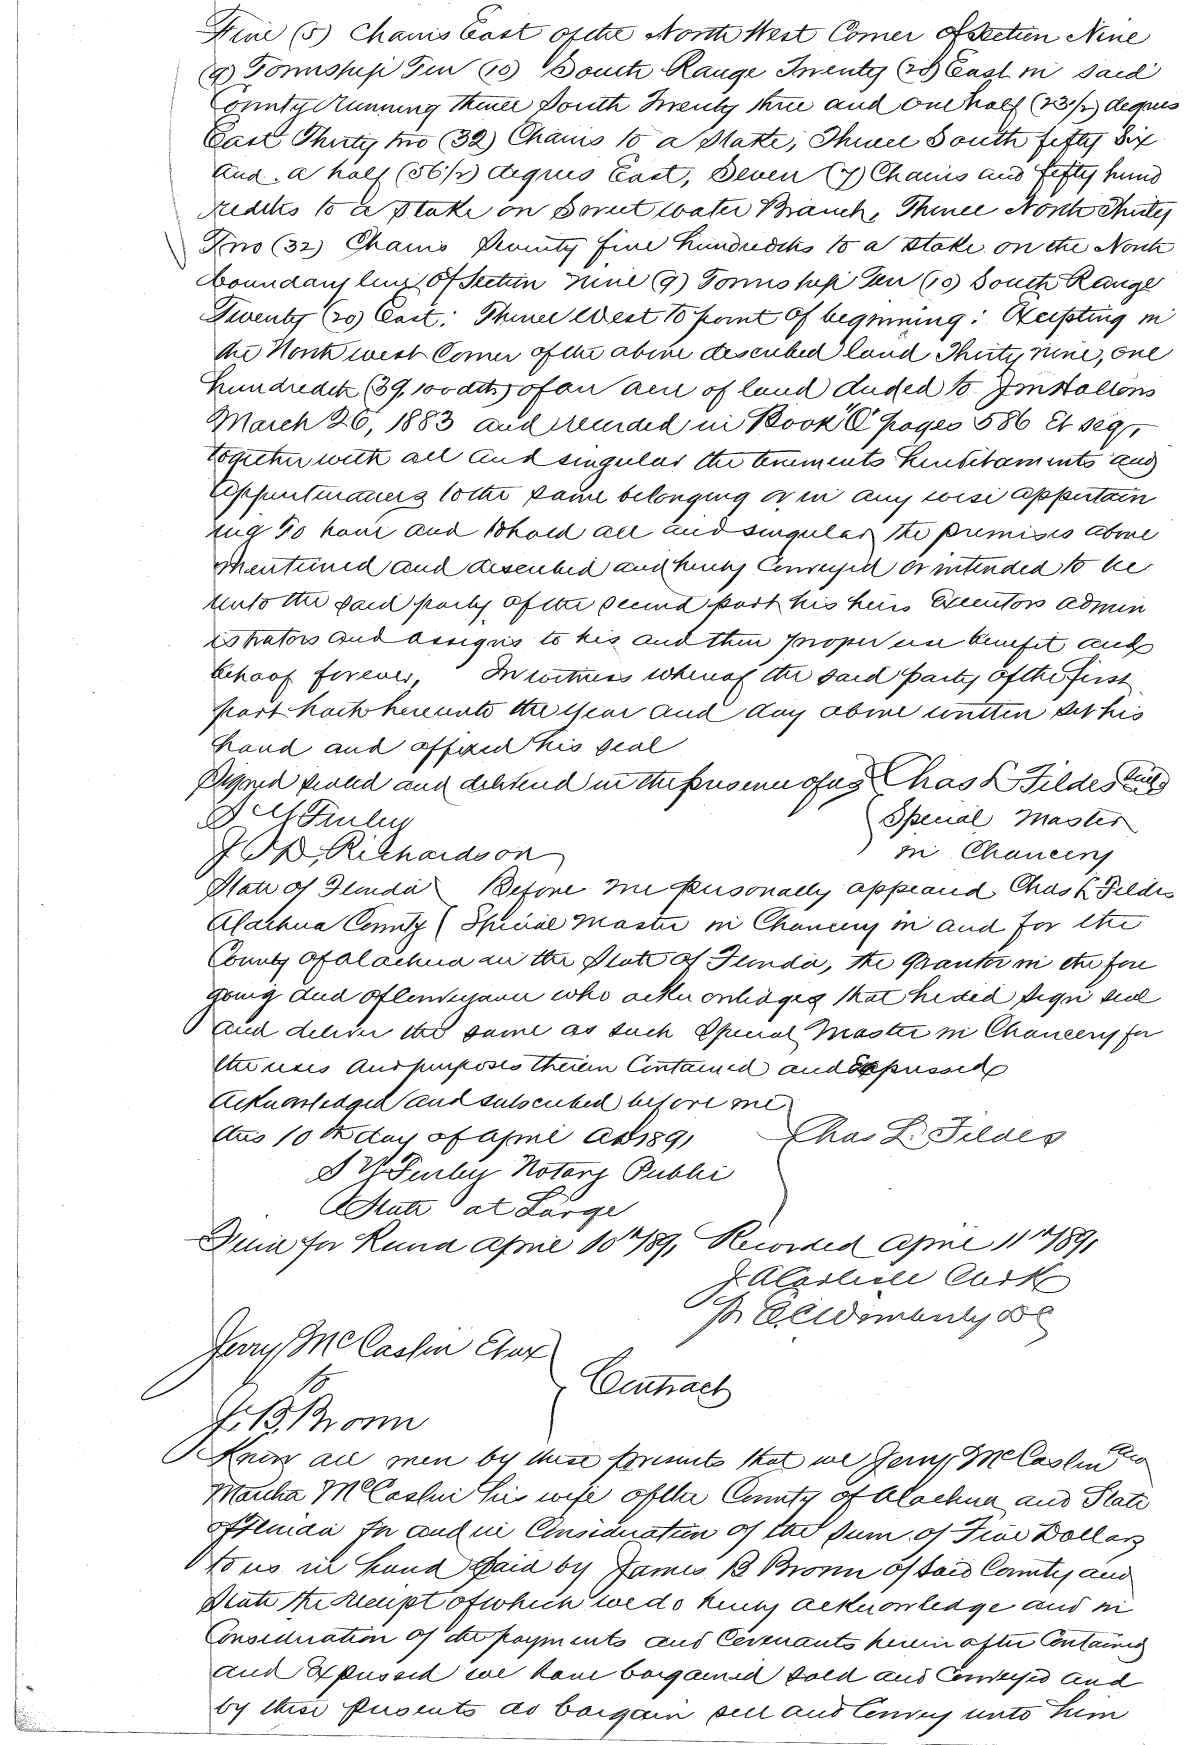 Five (5) Chains East of the North West Corner of Section Nine
(9) Township Ten (10) South Range Twenty (20) East in said
County Running thence South Twenty three and one half (23 1/2) degrees
East Thirty two (32) Chains to a stake, Thence South fifty Six
and a half (56 1/2) degrees East, Seven (7) Chains and fifty hund
redths to a stake on Sweet water Branch, Thence North Thirty
Two (32) Chains Seventy five hundredths to a stake on the North
boundary line of Section nine (9) Township Ten (10) South Range
Twenty (20) East; Thence West to point of beginning; Excepting in
the North west Corner of the above described land Thirty nine, one
hundredth (39/100dths) of an acre of land deeded to
March 26, 1883 and recorded in Book "O" pages 586 Et seq,
together with all and singular the tenements hereditaments and
appurtenances to the same belonging or in any wise appertain
ing To have and to hold all and singular the premises above
mentioned and described and hereby Conveyed or intended to be
unto the said party of the second part his heirs Executors admin
istrators and assigns to his and their proper use benefit and
behoof forever, In witness whereof the said party of the first
part hath hereunto the year and day above written set his
hand and affixed his seal
Signed sealed and delivered in the presence of us Chas L Fildes (seal)
S Y Finley Special Master
J D, Richardson in Chancery
State of Florida Before me personally appeared Chas L Fildes
Alachua County Special Master in Chancery in and for the
County of Alachua in the State of Florida, the Grantor in the fore
going deed of Conveyance who acknowledges that he did sign seal
and deliver the same as such Special Master in Chancery for
the uses and purposes therein Contained and Expressed
Acknowledged and subscribed before me
this 10th day of April AD 1891 Chas L. Fildes
S Y Finley Notary Public
State at Large
Filed for Record April 10th 1891 Recorded April 11th 1891
J A Carlisle Clerk
Pr E. C. Wimberly DC
Jerry McCaslin Et ux
to Contract
J. B. Brown
Know all men by these presents that we Jerry McCaslin and
Martha McCaslin his wife of the County of Alachua and State
of Florida for and in Consideration of the sum of Five Dollars
to us in hand paid by James B Brown of said County and
State the receipt of which we do hereby acknowledge and in
Consideration of the payments and Covenants herein after Contained
and Expressed we have bargained sold and Conveyed and
by these presents do bargain sell and Convey unto him